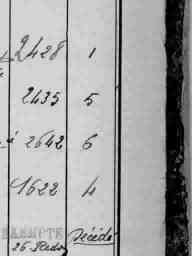 2428 1
2435 5
à 2642 6
1622 4
EXEMPTE Décédé
26